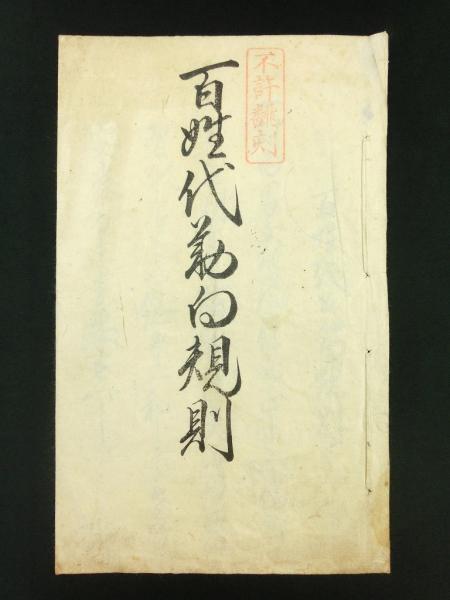 不許翻刻
百姓代勤向規則